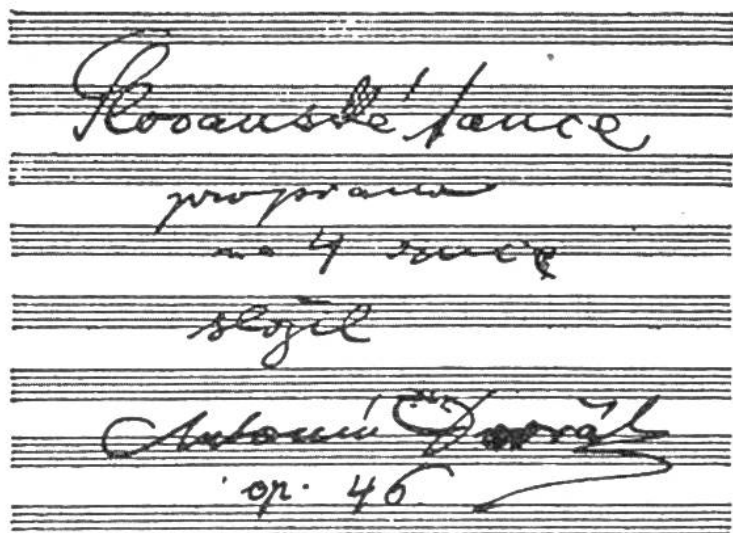 Slovanské tance
pro piano
na 4 ruce
složil
Antonín Dvořák
op. 46